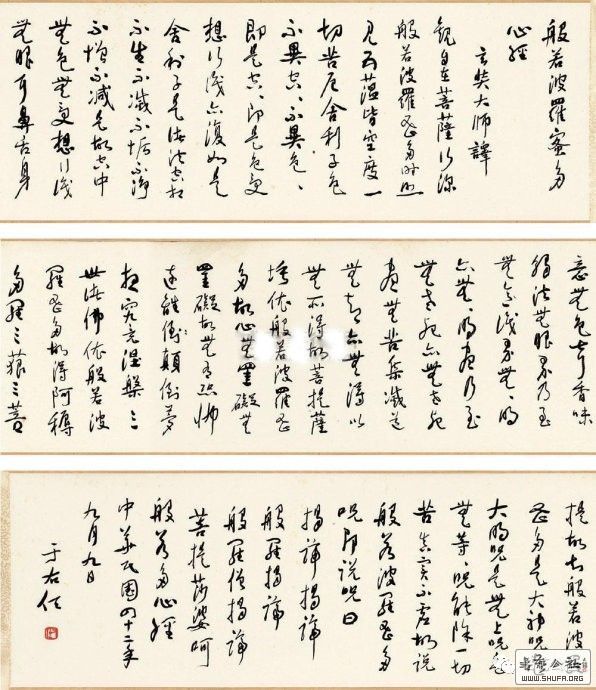 般若波羅蜜多
心經
玄奘大師譯
觀自在菩薩行深
般若波羅蜜多時照
見五蘊皆空度一
切苦厄舍利子色
不異空、不異色、
即是空、即是色受
想行識亦復如是
舍利子是諸法空相
不生不滅不垢不淨
不增不減是故空中
無色無受想行識
無眼耳鼻舌身
意無色聲香味
觸法無眼界乃至
無意識界無、明
亦無、明盡乃至
無老死亦無老死
盡無苦集滅道
無智亦無得以
無所得故菩提薩
埵依般若波羅蜜
多故心無罣礙無
罣礙故無有恐怖
遠離倒顛倒夢
想究竟涅槃三
世諸佛依般若波
羅蜜多故得阿耨
多羅三藐三菩
提故知般若波
蜜多是大神呪
大明呪是無上呪是
無等、呪能除一切
苦真實不虛故說
般若波羅蜜多
呪即說呪曰
揭諦揭諦
般羅揭諦
般羅僧揭諦
菩提莎婆呵
般若多心經
中華民國四十二年
九月九日
于右任
WWW.SHUFA.ORG